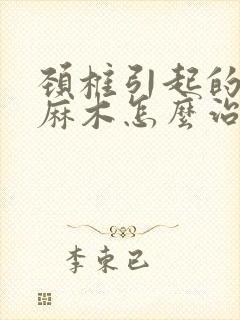 頸椎引起的
麻木怎麼治
李束已